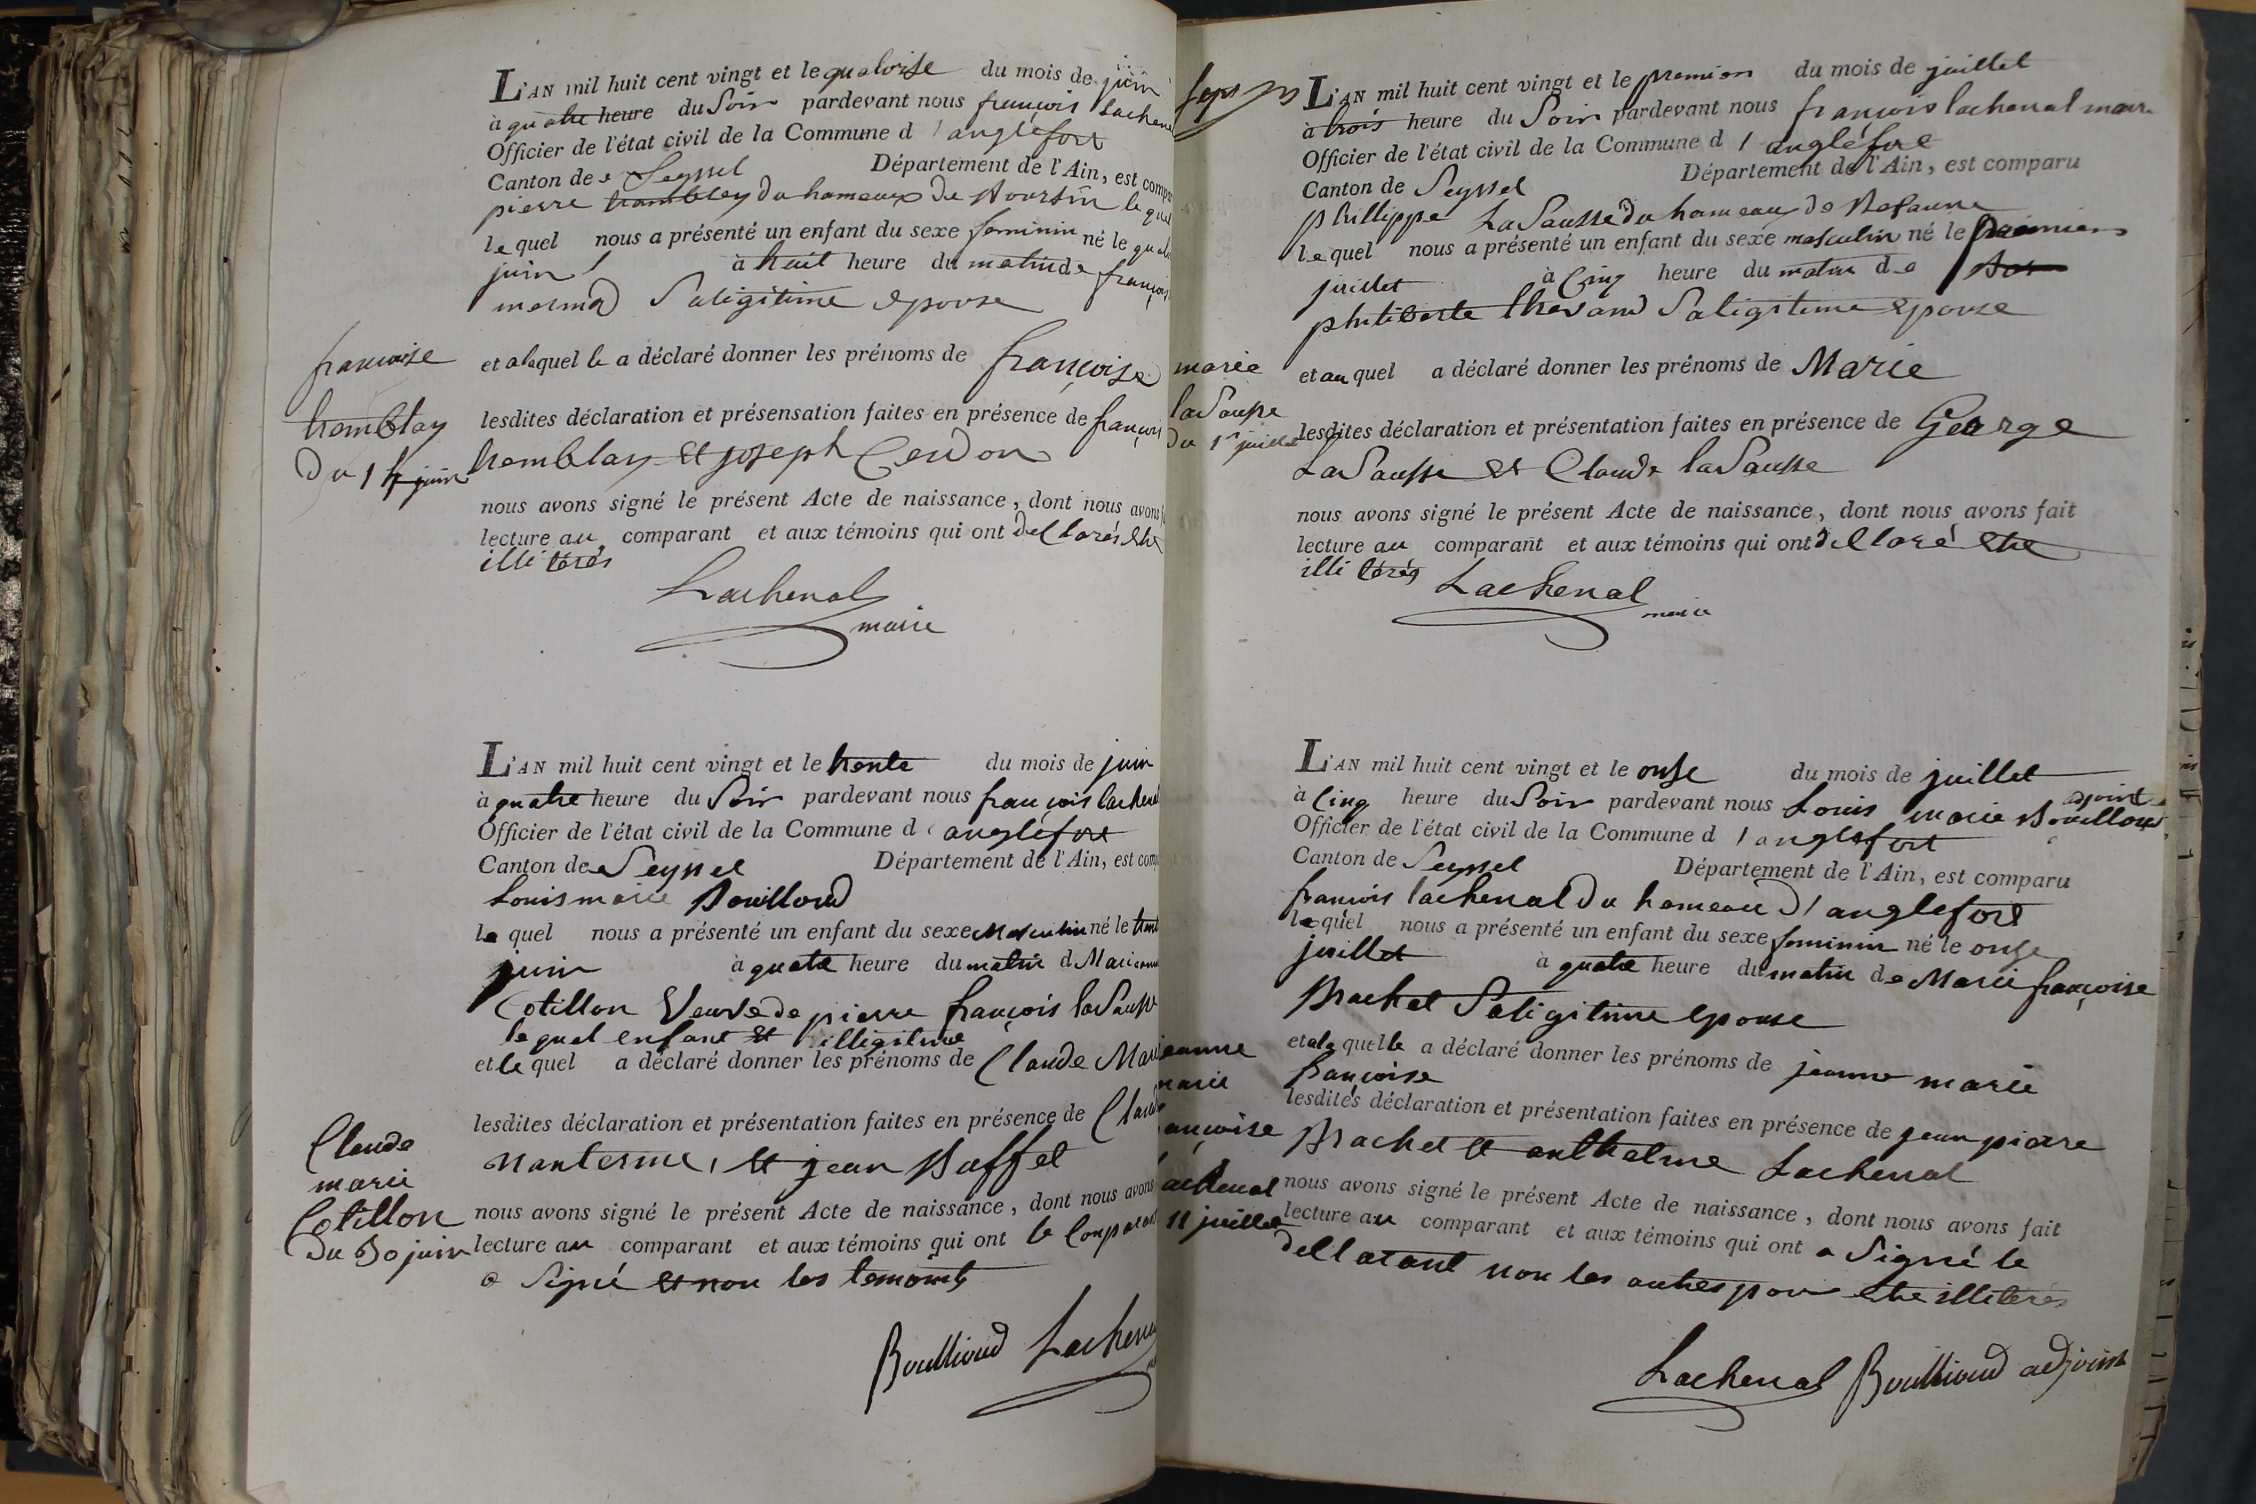 L'AN mil huit cent vingt et le quatorse du mois de juin
à quatre heure du Soir pardevant nous françois Lachena
Officier de l'état civil de la Commune d'anglefort
Canton de Seyssel Département de l'Ain, est compa
pierre tremblay du hameaux de le quel
le quel nous a présenté un enfant du sexe feminin né le quato
juin à huit heure du matin de françois
mermod Saligitime epouse
françoise
et alaquel le a déclaré donner les prénoms de françoise
tremblay
du 14 juin
lesdites déclaration et présensation faites en présence de françois
tremblay et joseph Cerdon
nous avons signé le présent Acte de naissance, dont nous avons
lecture au comparant et aux témoins qui ont dellarés etre
illitérés
Lachenal
maire
L'AN mil huit cent vingt et le trente du mois de juin
à quatre heure du Soir pardevant nous françois lachenal
Officier de l'état civil de la Commune d'anglefort
Canton de Seyssel Département de l'Ain, est comp
Louis marie Bouilloud
le quel nous a présenté un enfant du sexe Masculin né le trent
juin à quatre heure du matin d Marianne
Cotillon Veuve de pierre françois laSausse
le quel enfant et illigitime
et le quel a déclaré donner les prénoms de Claude Mari
lesdites déclaration et présentation faites en présence de Claude
nanterme, et jean Buffet
Claude
marie
Cotillon
du 30 juin
nous avons signé le présent Acte de naissance, dont nous avons
lecture au comparant et aux témoins qui ont le Comparant
a Signé et non les temoints
Boullioud Lachenal
L'AN mil huit cent vingt et le premier du mois de juillet
à trois heure du Soir pardevant nous françois lachenal maire
Officier de l'état civil de la Commune d'anglefort
Canton de Seyssel Département de l'Ain, est comparu
phillippe LaSausse du hameau de
le quel nous a présenté un enfant du sexe masculin né le premier
juillet à Cinq heure du matin de
philiberte thevand Saligitime epouse
marie
laSausse
du 1er juillet
et au quel a déclaré donner les prénoms de Marie
lesdites déclaration et présentation faites en présence de George
LaSausse et Claude laSausse
nous avons signé le présent Acte de naissance, dont nous avons fait
lecture au comparant et aux témoins qui ont dellaré etre
illitérés
Lachenal
maire
L'AN mil huit cent vingt et le onse du mois de juillet
à Cinq heure du Soir pardevant nous Louis marie Bouilloud adjoint
Officier de l'état civil de la Commune d'anglefort
Canton de Seyssel Département de l'Ain, est comparu
francois lachenal du hameau d'anglefort
le quel nous a présenté un enfant du sexe feminin né le onze
juillet à quatre heure du matin de Marie françoise
Brachet Saligitime epouse
eanne
marie
ançoise
achenal
11 juillet
et ala quelle a déclaré donner les prénoms de jeanne marie
françoise
lesdites déclaration et présentation faites en présence de jean piarre
Brachet et anthelme Lachenal
nous avons signé le présent Acte de naissance, dont nous avons fait
lecture au comparant et aux témoins qui ont a Signé le
dellarant non les autres pour etre illiterés
Lachenal Boullioud adjoint